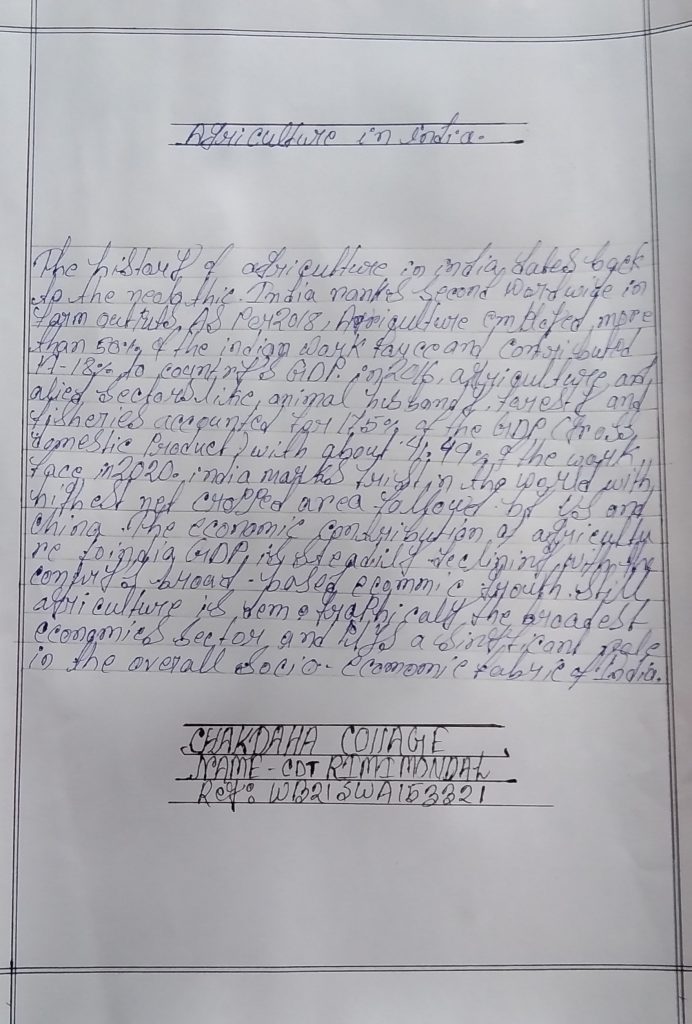 Agriculture in India.
The history of agriculture in india dates back
to the neolathic. India ranks second worldwide in
farm outputs. AS Per 2018, Agriculture employed more
than 50% of the indian work force and contributed
17-18% to country's GDP. in 2016, agriculture and
alied sectors like, animal husbandry, forestry and
fisheries accounted for 17.5% of the GDP (Gross
domestic Product) with about 41.49% of the work
face in 2020. india marks first in the world with
highest net cropped area followed by US and
china. The economic contribution of agricultu
re to india GDP, is steadily declining with the
contry's broad-based economic grouth. still
agriculture is demographically the broadest
economics sector and plys a significant role
in the overall Socio-economic fabric of India.
CHAKDAHA COllAGE
NAME - CDT RIMI MONDAL
Reg: WB21SWA153321